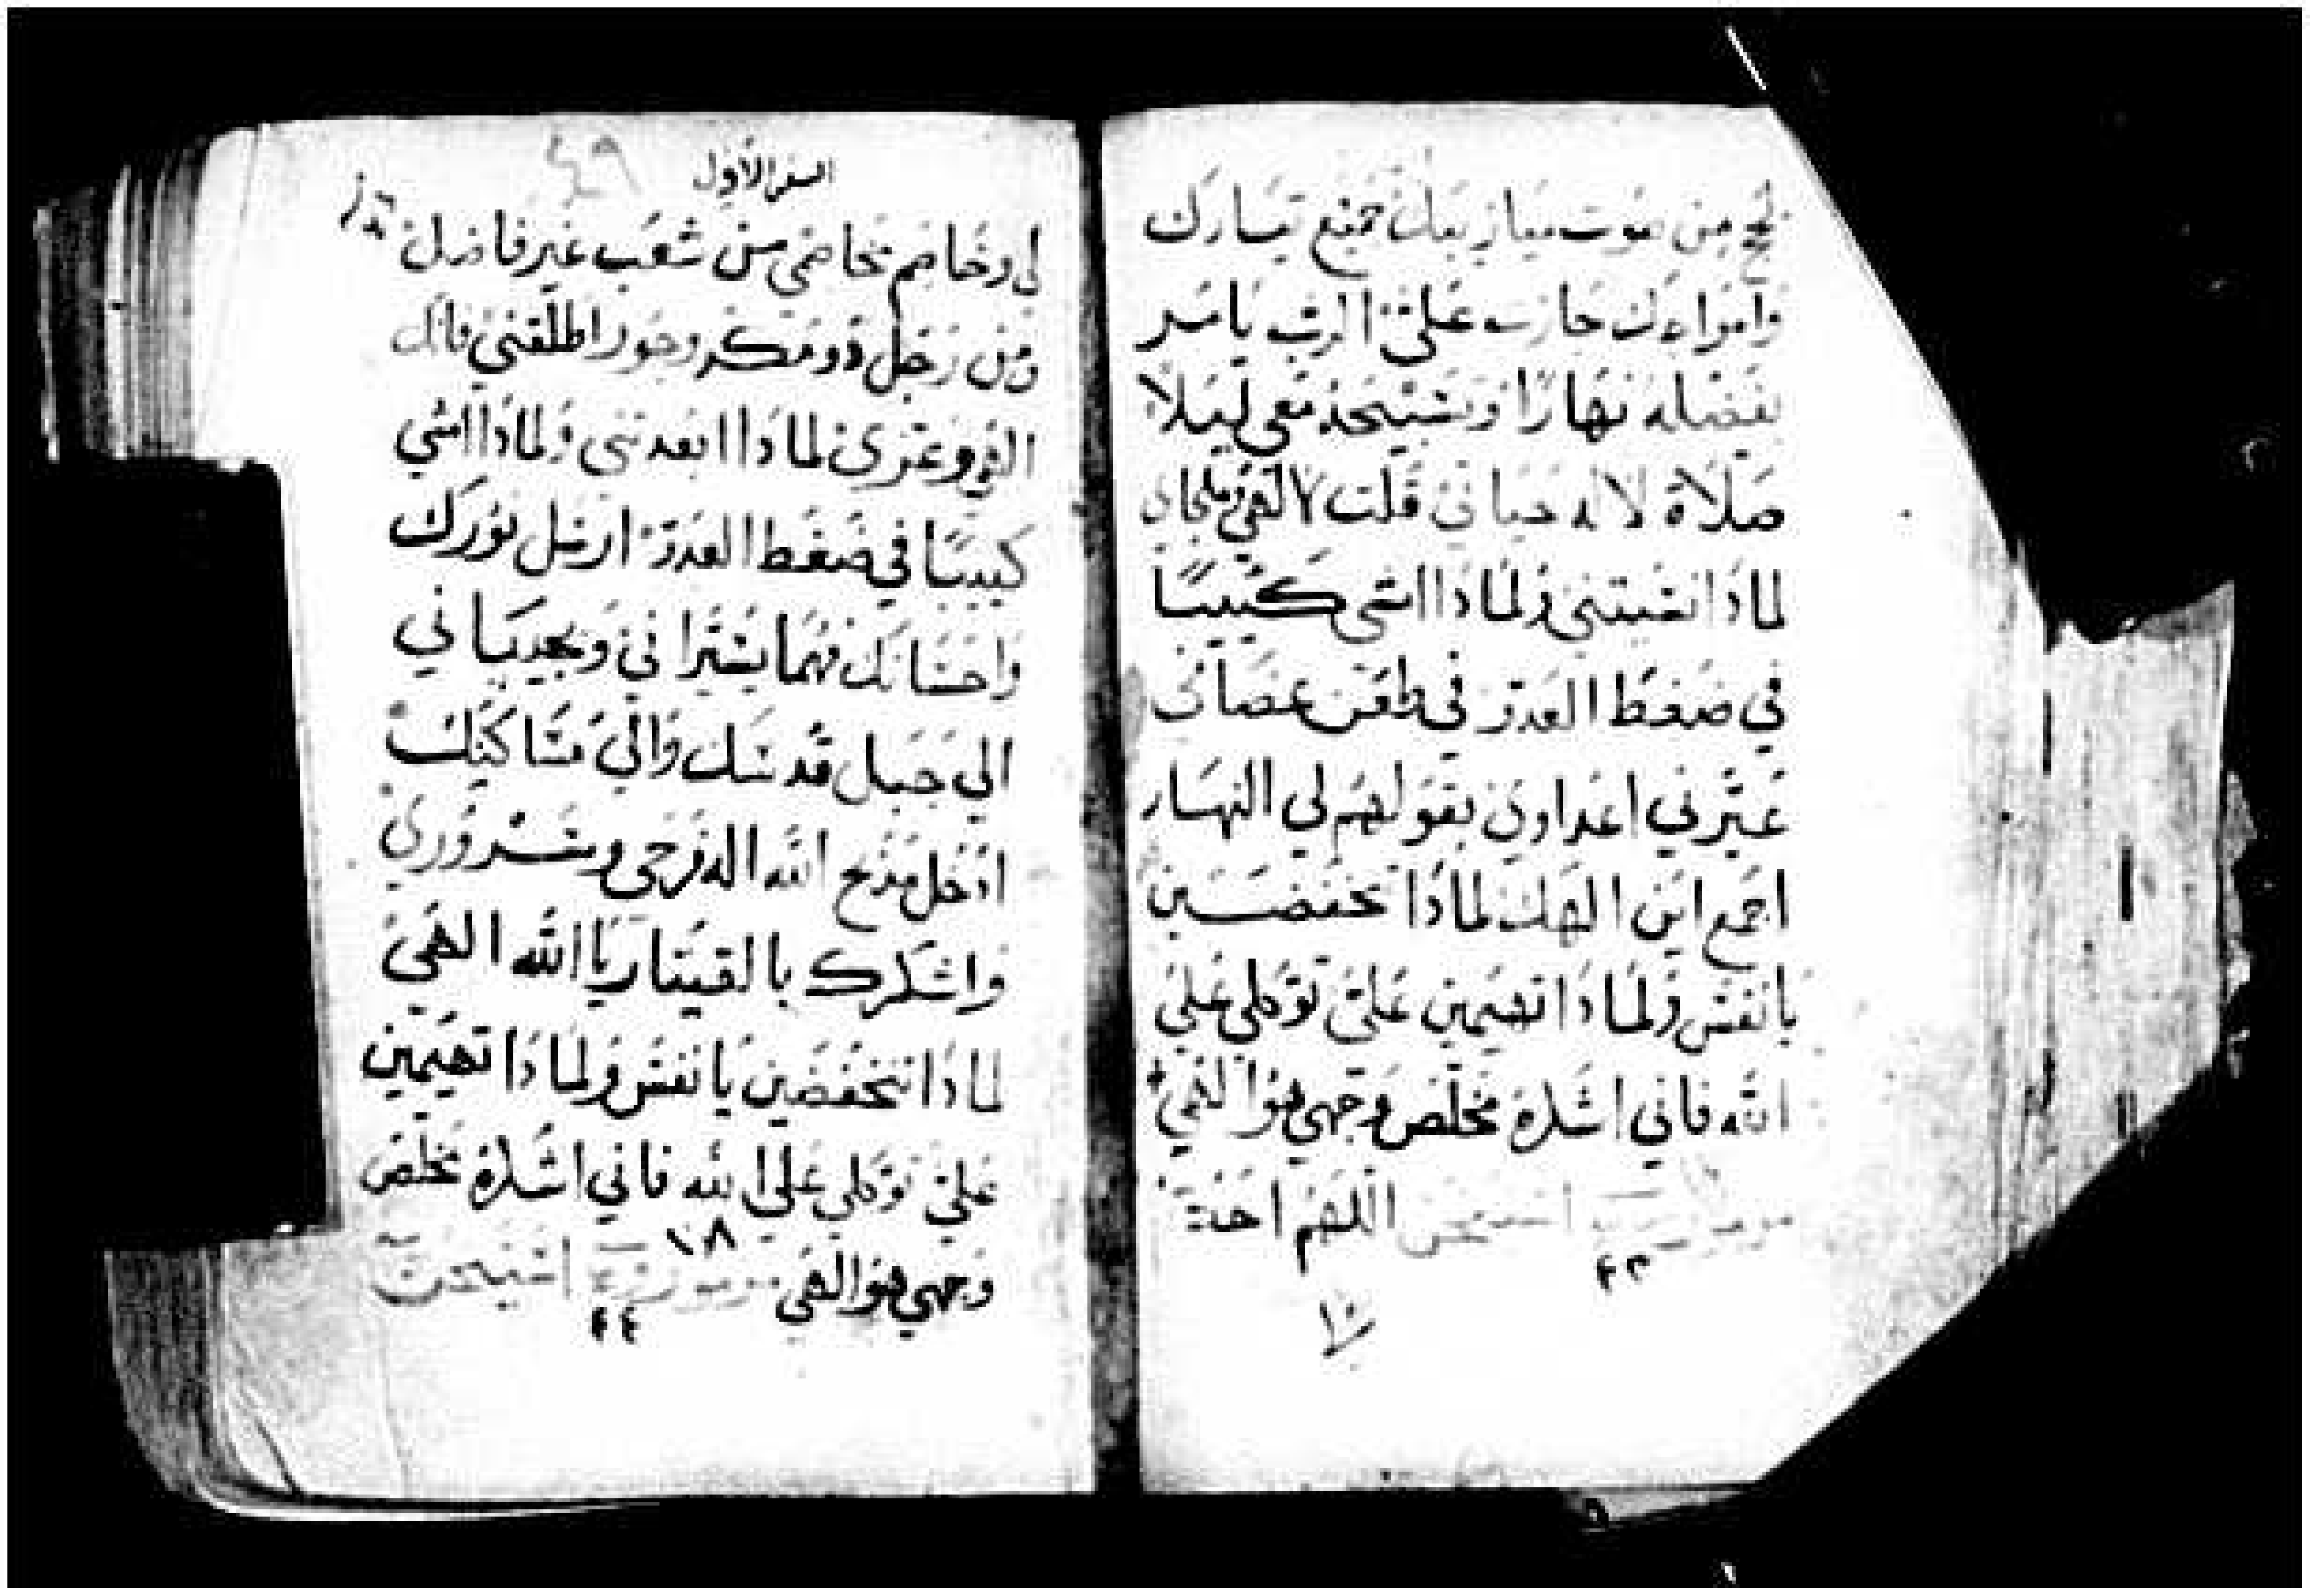 لج من صوت ميازيبك جميع تيارك
وامواجك جازت علىّ الرب يامر
بفضله نهارًا وتسبيحه معي ليلًا
صلاة لاله حياتي قلت لالهي وملجاي
لماذا نسيتني ولماذا امشي كئيبًا
في ضغط العدو في طعن عضامي
عيّرني اعداوي بقولهم لي النهار
اجمع اين الهك لماذا تنخفضين
يا نفس ولماذا تهيمين عليّ توكلي علي
الله فاني اشكره مخلص وجهي هوا الهي
مزمور اللهم احكم
٤٢
السفر الاول
٤٩
لي وخاصم مخاصمي من شعب غير فاضل
ومن رجل ذو مكر وجور اطلقني فانك
الهي وعزي لماذا ابعدتني ولماذا امشي
كييبًا في ضغط العدو ارسل نورك
واحسانك فهما يسيّراني ويجيباني
الي جبل قدسك والي مساكنك
ادخل مذبح الله اله فرحي وسروري
واشكرك بالقيتار يا الله الهي
لماذا تنخفضين يا نفس ولماذا تهيمين
عليّ توكلي علي الله فاني اشكره مخلص
١٨
وجهي هوا الهي مزمور
٤٤